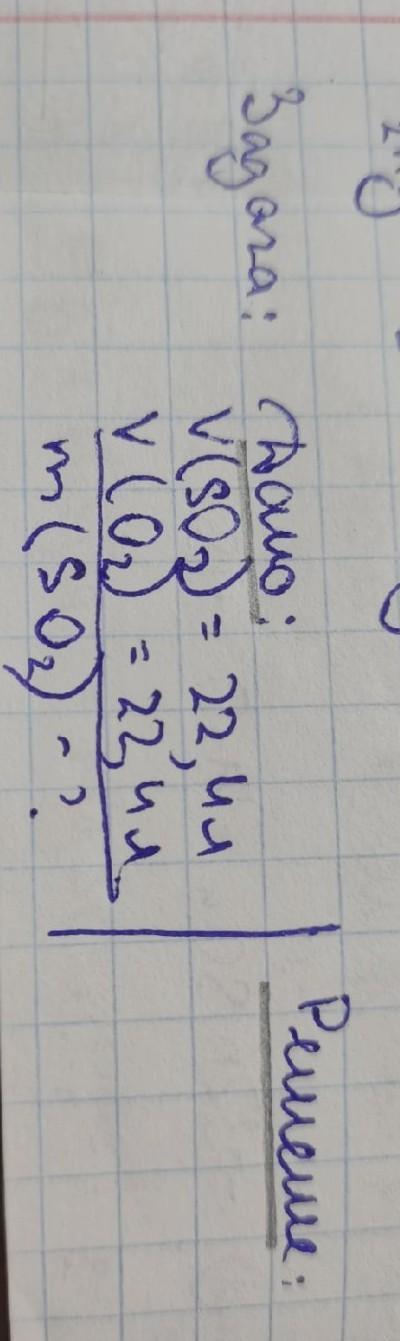 Задача:
Дано:
V(SO₂) = 22,4л
V(O₂) = 22,4л
m(SO₂) - ?
Решение: